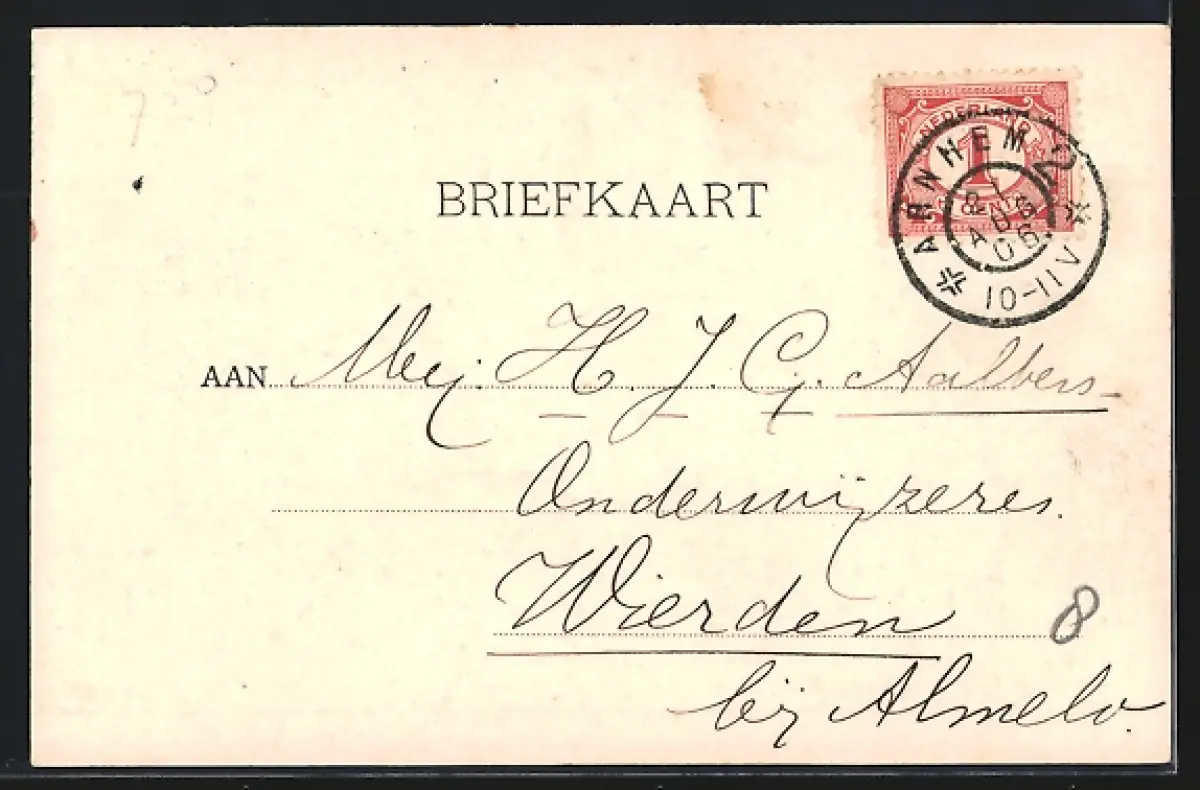 700
NEDERLAND
1
CENT
ARNHEM 2
21
AUG
06
10-11V
BRIEFKAART
AAN Mej. H. J. G. Aalbers
Onderwijzeres.
Wierden
8
bij Almelo.